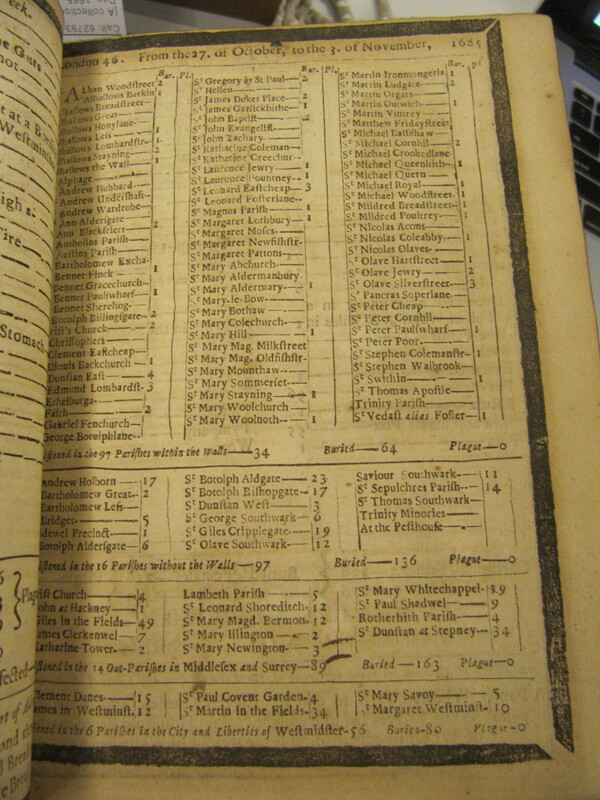 London 46. From the 27. of October, to the 3. of November, 1685
Bur. Pl.
Alban Woodstreet 2
Alhallows Barkin 1
lhallows Breadstreet
lhallows Great
lhallows Honylane
lhallows Less
lhallows Lombardstr. 1
lhallows Stayning 2
lhallows the Wall 1
Alphage
Andrew Hubbard
Andrew Undershaft
Andrew Wardrobe
Ann Aldersgate 2
Ann Blackfriers
Antholins Parish
Austins Parish
Bartholomew Excha.
Bennet Finck 1
Bennet Gracechurch
Bennet Paulswharf 1
Bennet Sherehog
Botolph Billingsgate 2
rist's Church 2
Christophers
Clement Eastcheap
Dionis Backchurch 1
Dunstan East 4
Edmund Lombardst. 3
Ethelburga
Faith 2
Gabriel Fenchurch
George Botolphlane
Bur. Pl.
St Gregory by St Paul 2
St Hellen
St James Dukes Place 2
St James Garlickhithe 1
St John Baptist 2
St John Evangelist
St John Zachary
St Katharine Coleman
St Katharine Creechur
St Laurence Jewry 1
St Laurence Pountney
St Leonard Eastcheap 3
St Leonard Fosterlane
St Magnus Parish 1
St Margaret Lothbury 1
St Margaret Moses
St Margaret Newfishstr.
St Margaret Pattons
St Mary Abchurch
St Mary Aldermanbury
St Mary Aldermary 1
St Mary-le-Bow
St Mary Bothaw
St Mary Colechurch
St Mary Hill 1
St Mary Mag. Milkstreet
St Mary Mag. Oldfishstr.
St Mary Mounthaw
St Mary Sommerset
St Mary Stayning 1
St Mary Woolchurch
St Mary Woolnoth 1
Bur. Pl
St Martin Ironmongerla 1
St Martin Ludgate 2
St Martin Orgars
St Martin Outwich 1
St Martin Vintrey
St Matthew Fridaystreet
St Michael Bassishaw
St Michael Cornhil 2
St Michael Crookedlane
St Michael Queenhith 1
St Michael Quern
St Michael Royal 1
St Michael Woodstreet 1
St Mildred Breadstreet 1
St Mildred Poultrey 1
St Nicolas Acons
St Nicolas Coleabby 1
St Nicolas Olaves
St Olave Hartstreet 1
St Olave Jewry 2
St Olave Silverstreet 3
St Pancras Soperlane
St Peter Cheap
St Peter Cornhil
St Peter Paulswharf 1
St Peter Poor
St Stephen Colemanstr 1
St Stephen Walbrook
St Swithin 1
St Thomas Apostle
Trinity Parish
St Vedast alias Foster 1
istened in the 97 Parishes within the Walls 34 Buried 64 Plague 0
Andrew Holborn 17
Bartholomew Great 2
Bartholomew Less
Bridget 5
idewel Precinct 1
Botolph Aldersgate 6
St Botolph Aldgate 23
St Botolph Bishopgate 17
St Dunstan West 3
St George Southwark 6
St Giles Cripplegate 19
St Olave Southwark 12
Saviour Southwark 11
St Sepulchres Parish 14
St Thomas Southwark
Trinity Minories
At the Pesthouse
istened in the 16 Parishes without the Walls 97 Buried 136 Plague 0
rist Church 4
John at Hackney 1
Giles in the Fields 49
James Clerkenwel 7
Katharine Tower 2
Lambeth Parish 5
St Leonard Shoreditch 12
St Mary Magd. Bermon. 12
St Mary Islington 2
St Mary Newington 3
St Mary Whitechappel 19
St Paul Shadwel 9
Rotherhith Parish 4
St Dunstan at Stepney 34
istened in the 14 Out-Parishes in Middlesex and Surrey 89 Buried 163 Plague 0
Clement Danes 15
James in Westminst. 12
St Paul Covent Garden 4
St Martin in the Fields 34
St Mary Savoy 5
St Margaret Westminst. 10
istened in the 6 Parishes in the City and Liberties of Westminster 56 Buried 80 Plague 0